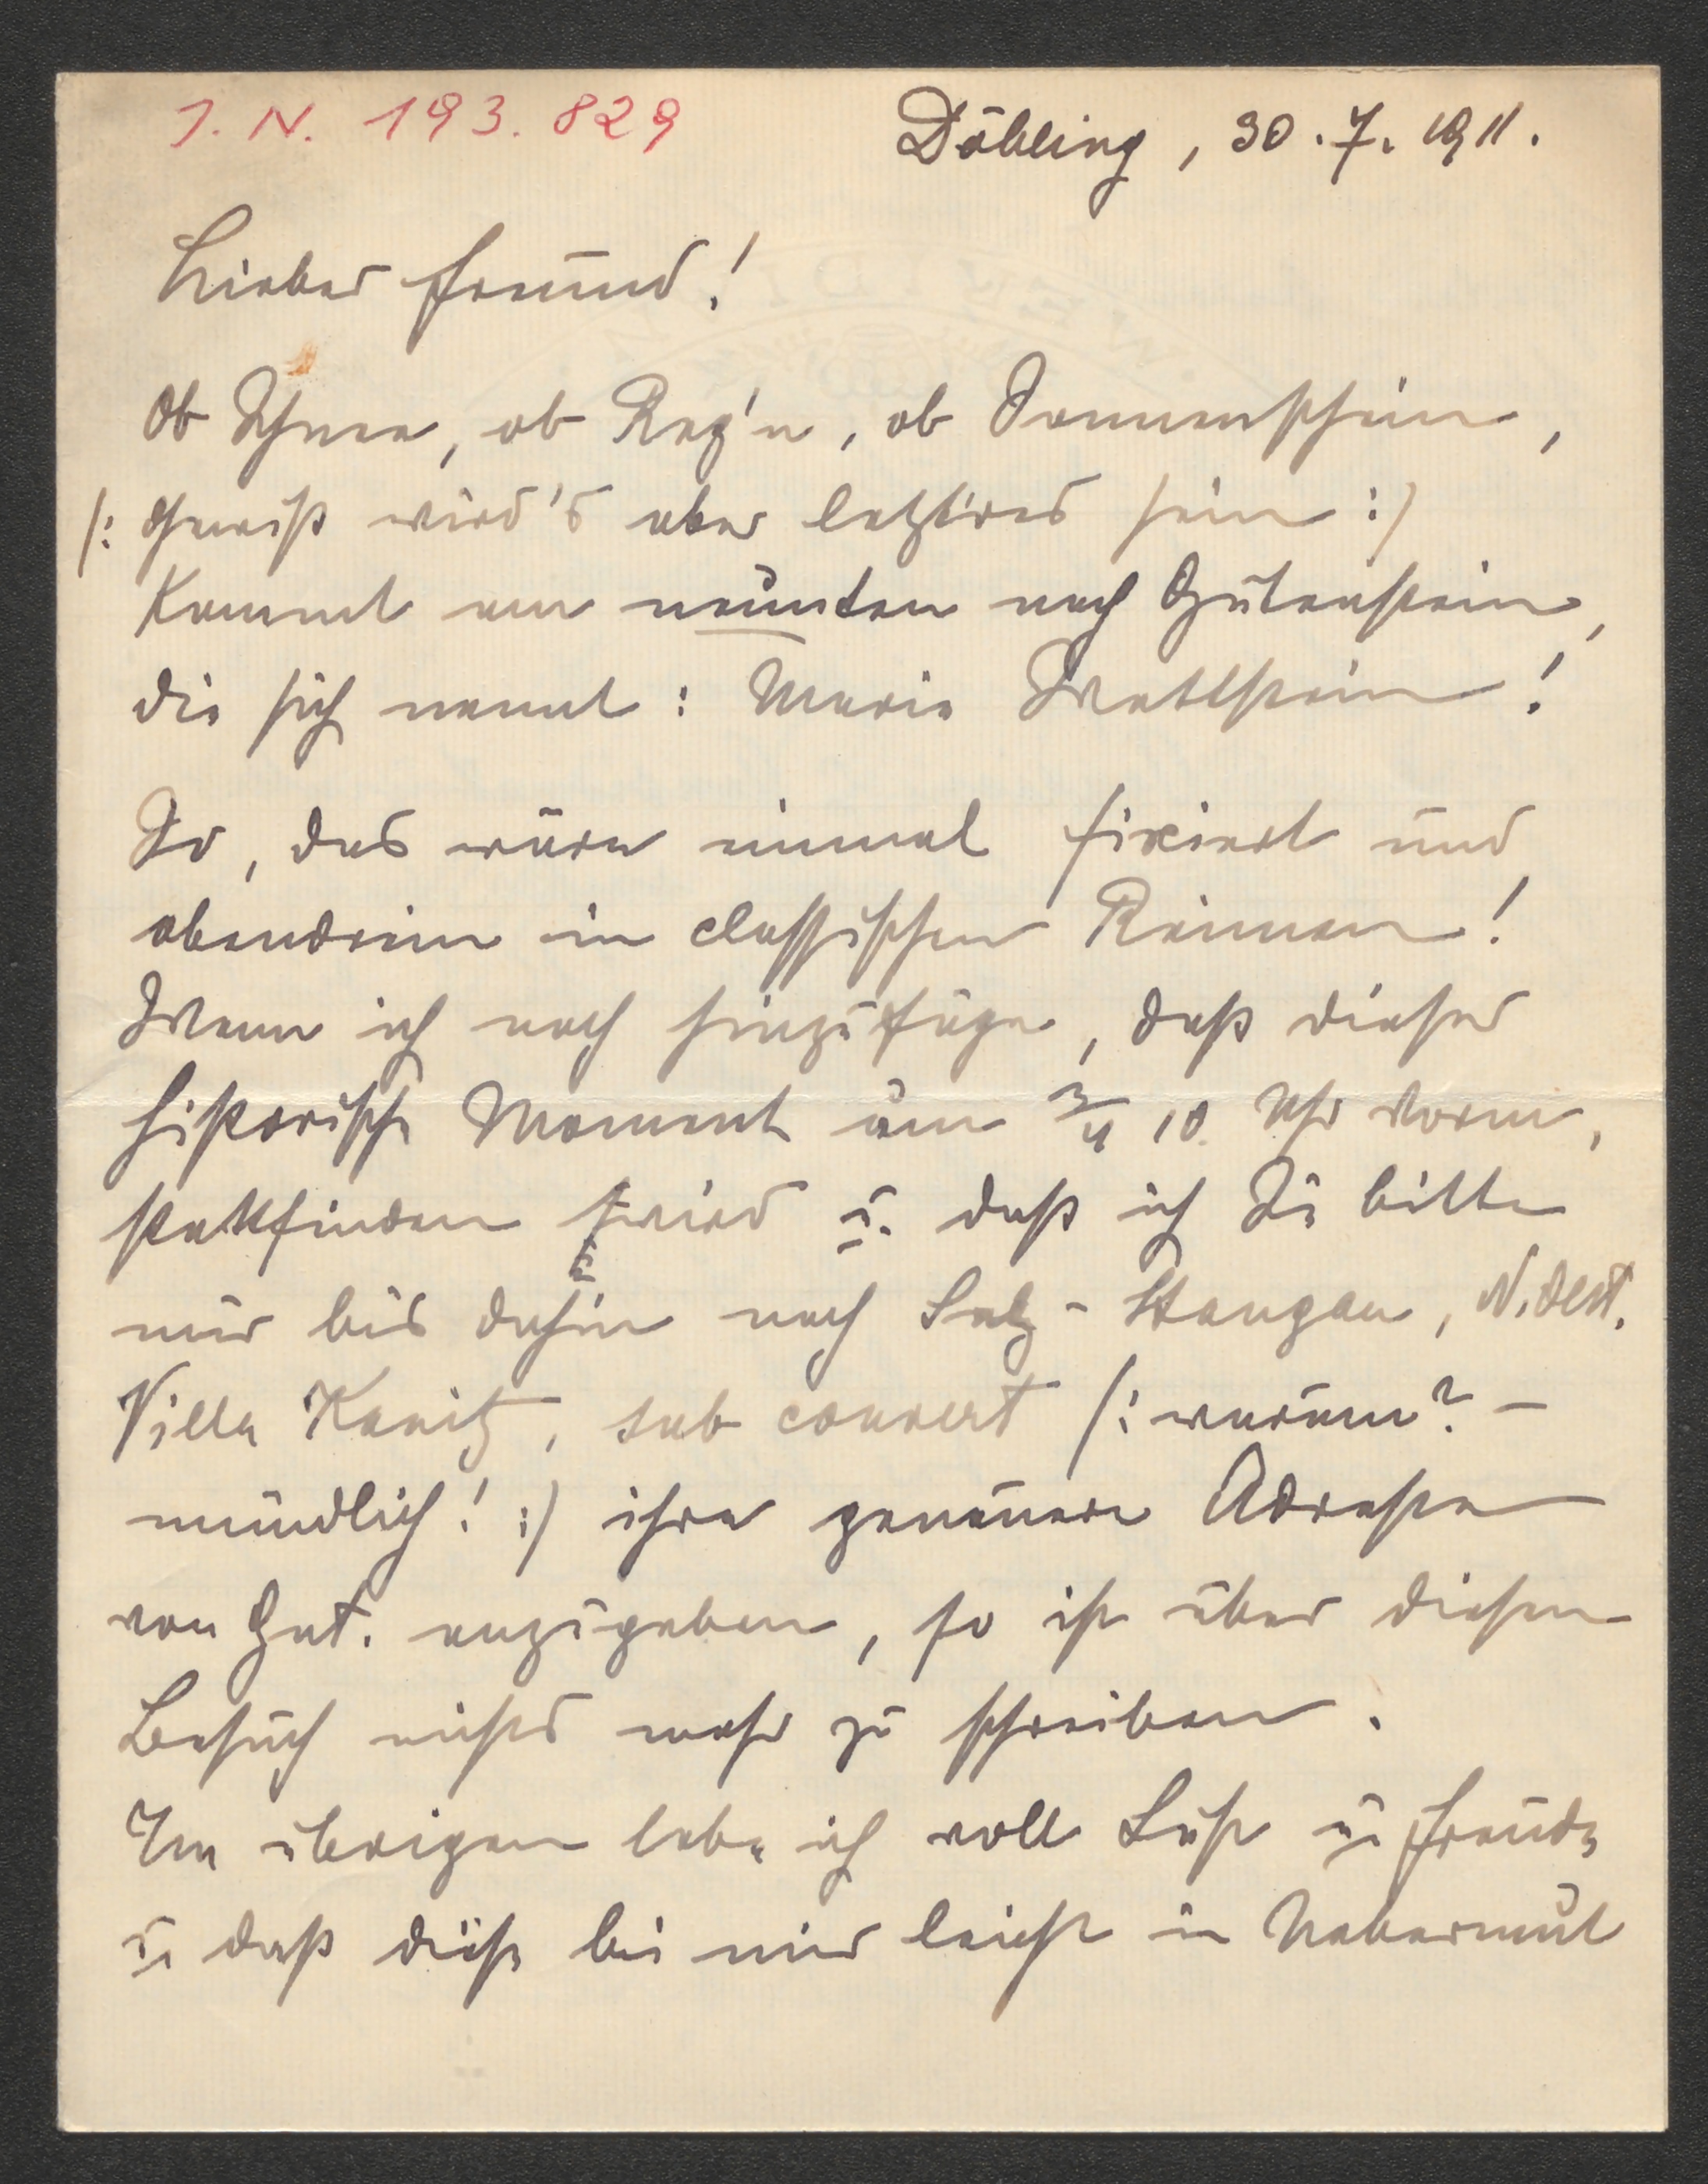 I. N. 193.829
Döbling, 30.7.1911.
Lieber Freund!
Ob Schnee, ob Reg'n, ob Sonnenschein,
/: Gewiß wird's aber letzt'res sein :/
Kommt am neunten nach Gutenstein,
die sich nennt: Marie Wettstein!
So, das wäre einmal fixiert und
obendrein in classischen Reimen!
Wenn ich noch hinzufüge, daß dieser
historische Moment um 3/4 10 Uhr Vorm,
stattfinden wird u. daß ich Sie bitte
mir bis dahin nach Sulz-Stangau, N.Oest.
Villa Kanitz, sub couvert /: warum? –
mündlich! :/ ihre genauere Adresse
von Gut. anzugeben, so ist über diesen
Besuch nichts mehr zu schreiben.
Im übrigen lebe ich voll Lust u. Freude
u. daß diese bei mir leicht in Uebermut